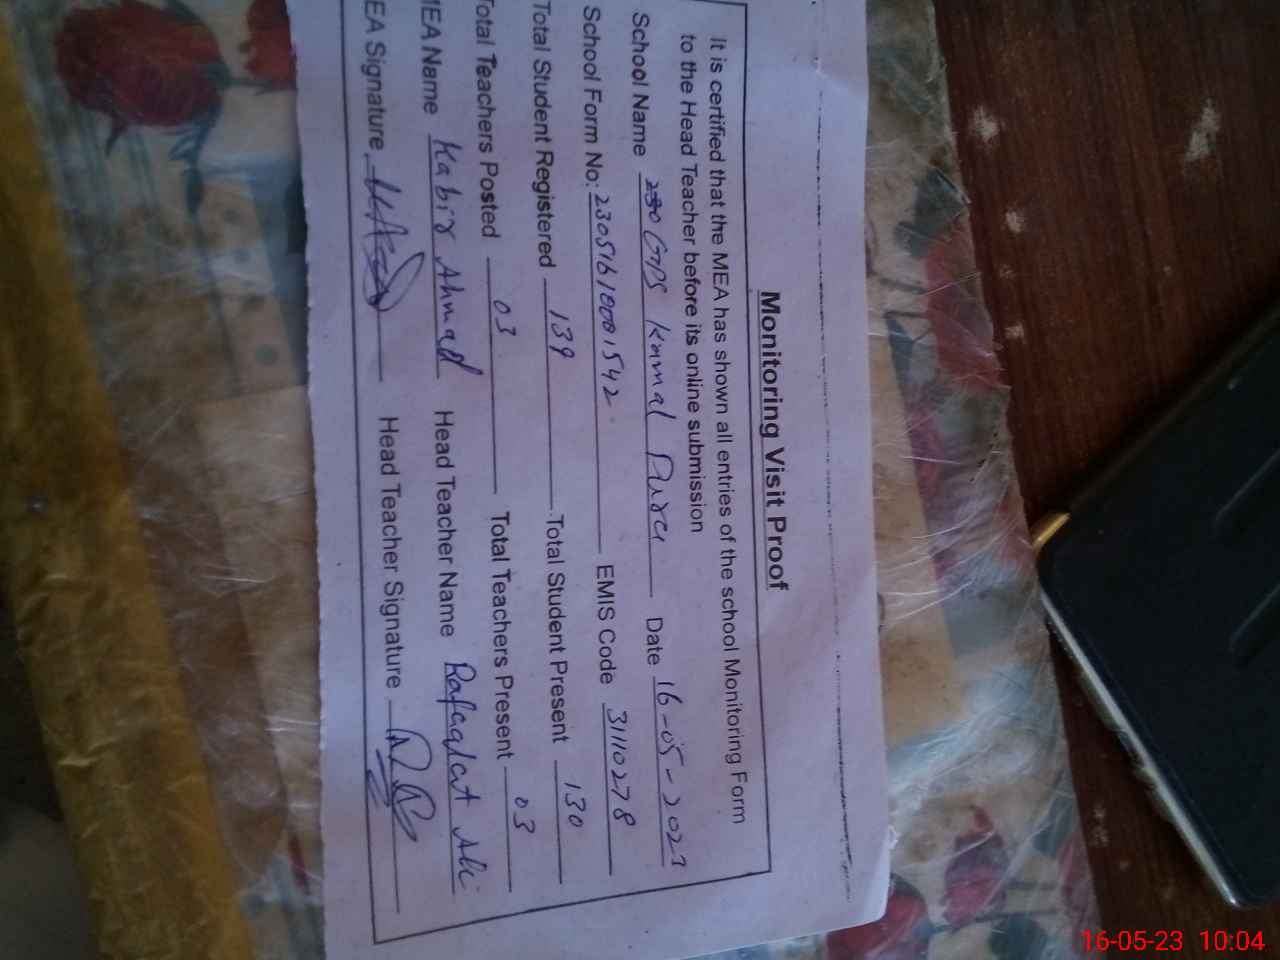 Monitoring Visit Proof
It is certified that the MEA has shown all entries of the school Monitoring Form
to the Head Teacher before its online submission
School Name GPS Kamal Pura Date 16-05-2023
School Form No: 23051610001542 EMIS Code 31110278
Total Student Registered 139 Total Student Present 130
Total Teachers Posted 03 Total Teachers Present 03
MEA Name Kabir Ahmad Head Teacher Name Rafaqat Ali
EA Signature Head Teacher Signature
16-05-23 10:04